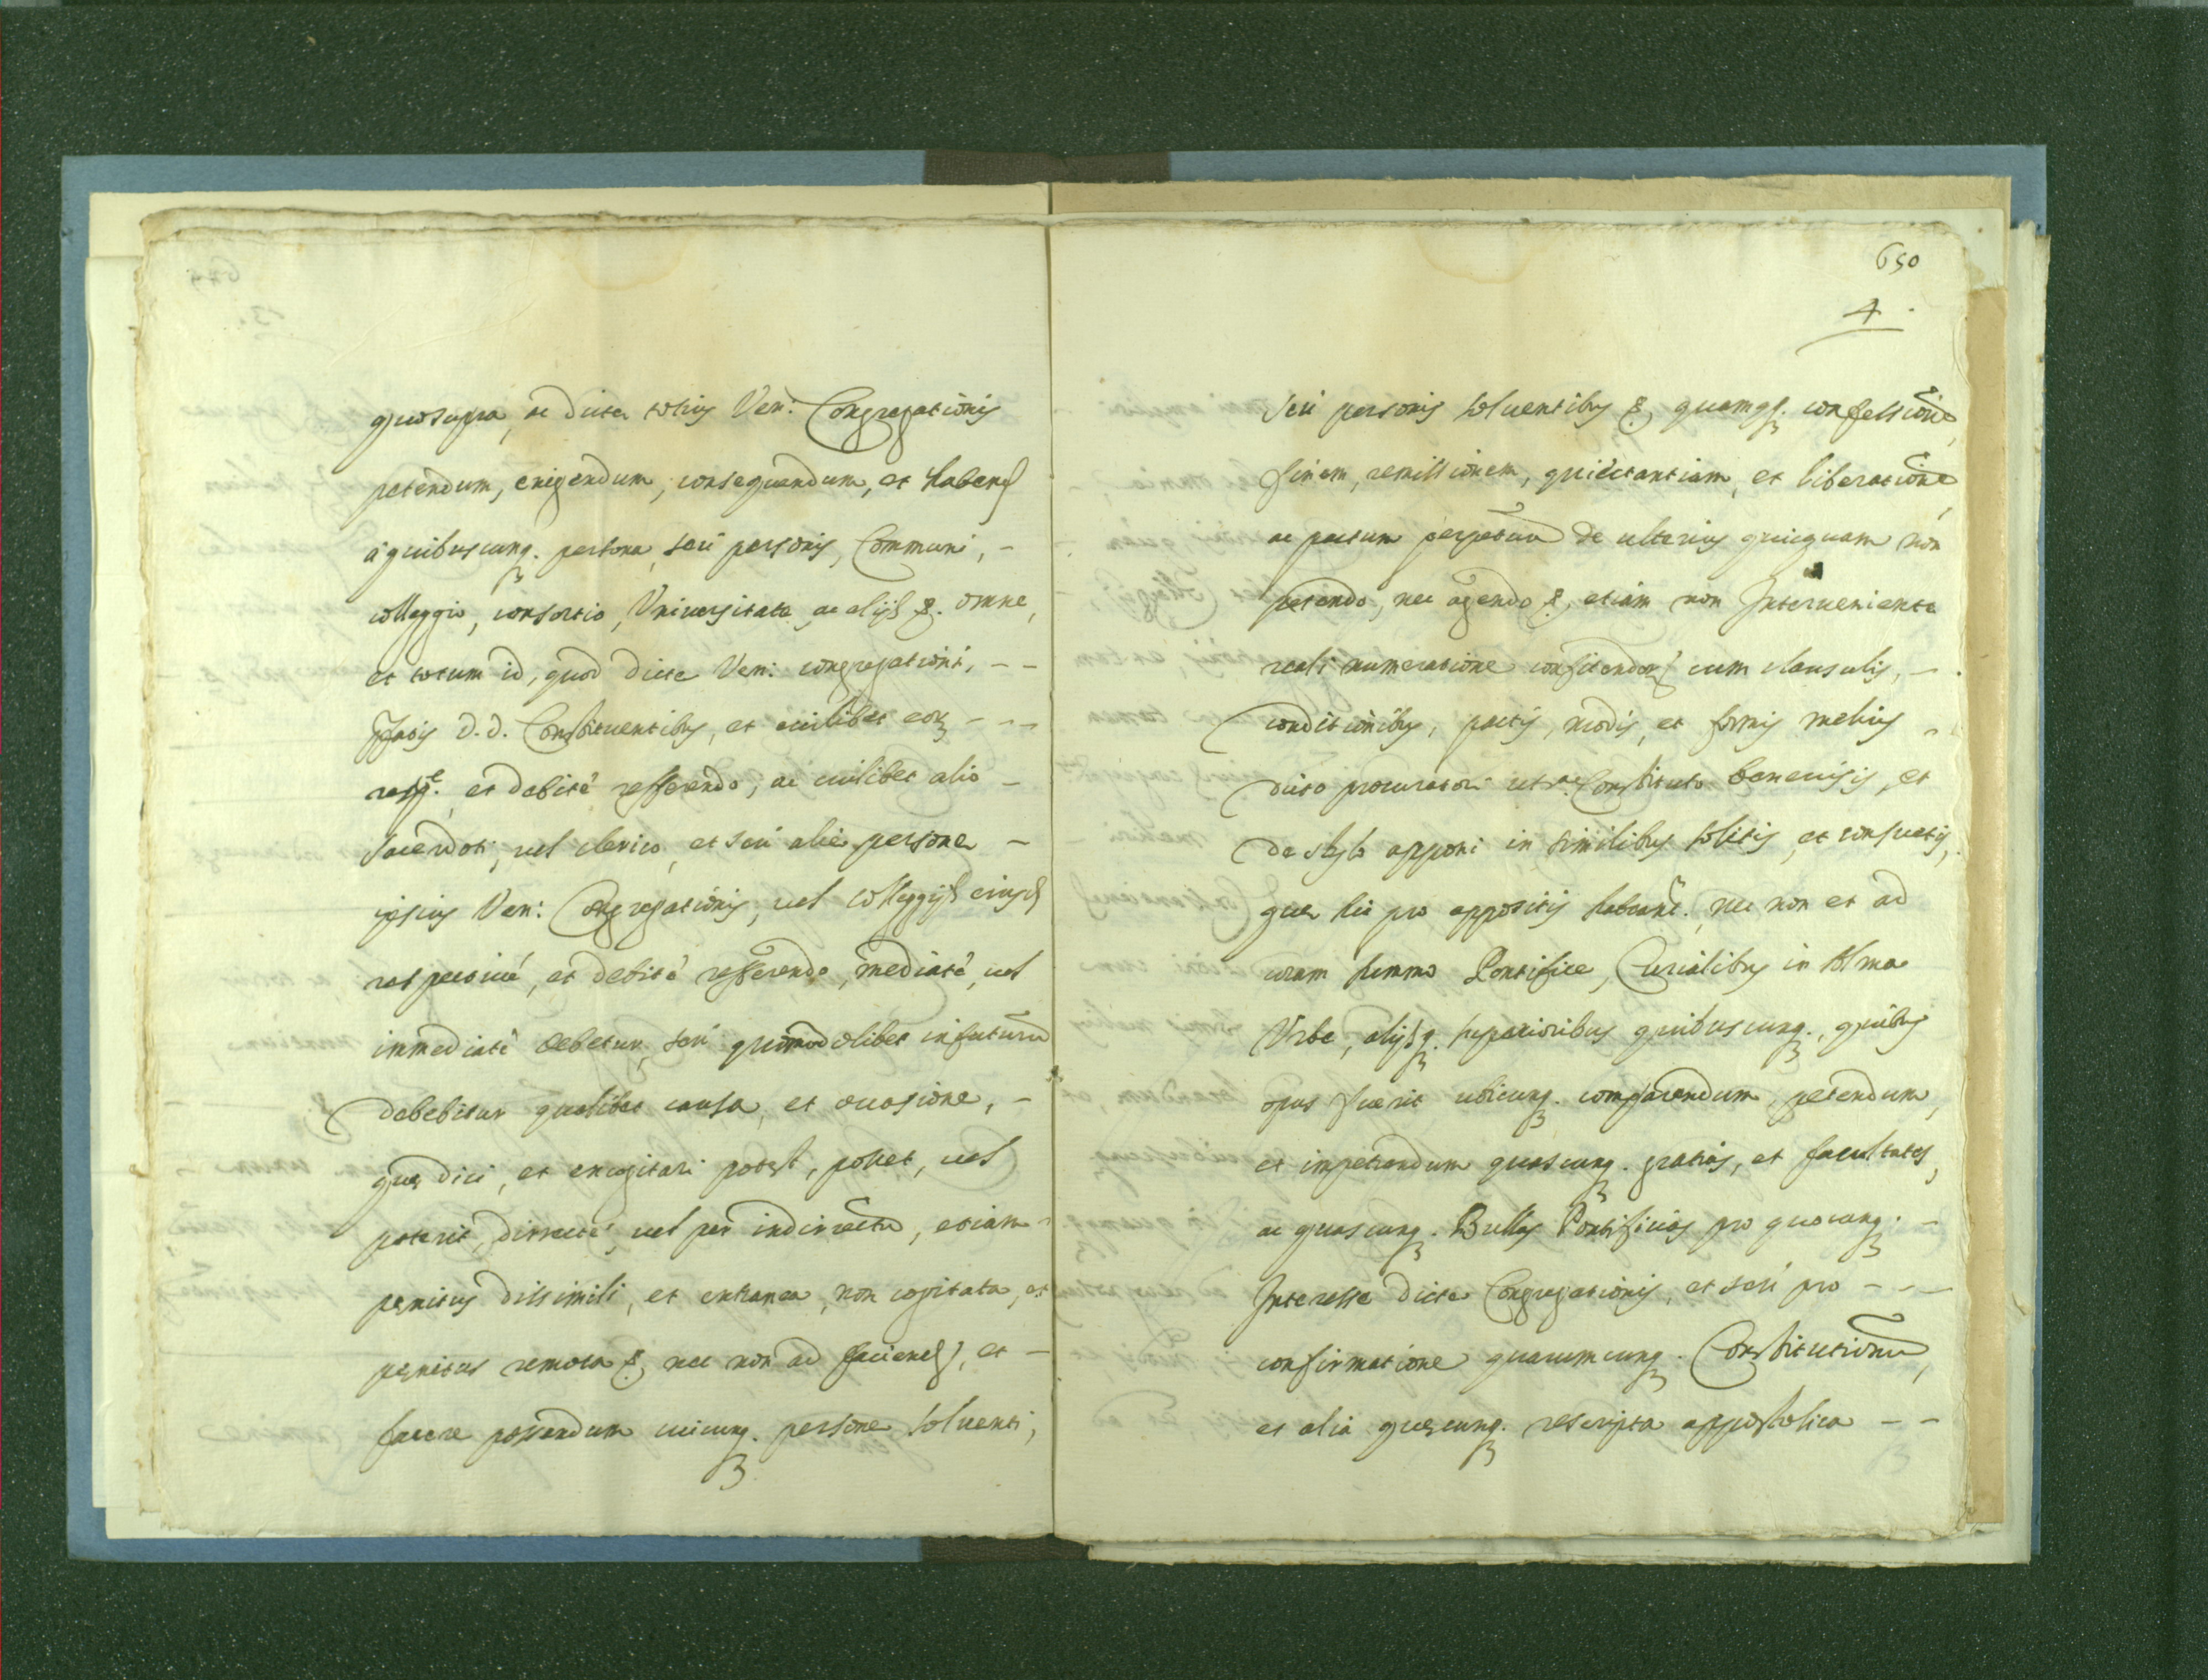 quo supra, ac dicte totius Ven: Congregationis
petendum, exigendum, consequendum, et habend
à quibuscunq. persona, seù personis, Communi, -
colleggio, consortio, Vniuersitate, ac alijs &. omne,
et totum id, quod dicte Ven: congregationi, - -
Ipsis D.D. Constituentibus, et cuilibet eor - - -
respe. et debitè refferendo, ac cuilibet alio -
sacerdoti, uel clerico, et seù alie persone -
ipsius Ven: Congregationis, uel colleggijs eiusd
respectiuè, et debitè refferendo, mediatè, uel
immediatè debetur, seù quomodolibet in futurū
debebitur qualibet causa, et occasione, -
que dici, et excogitari potest, posset, uel
poterit, directè, uel per indirectū, etiam -
penitus dissimili, et extranea, non cogitata, et
penitus remota &, nec non ad faciend, et -
facere possendum cuicunq. persone soluenti,
650
4.
seù personis soluentibus &, quamq. confessionē,
finem, remissionem, quiettantiam, et liberationē,
ac pactum perpetuū de ulterius quicquam non
petendo, nec agendo &, etiam non Interueniente
reali numeratione confitendor cum clausulis, -
conditionibus, pactis, modis, et formis melius -
dicto procuratori ut s.a Constituto beneuisis, et
de stylo apponi in similibus solitis, et consuetis,
que hic pro appositis habeant. nec non et ad
coram summo Pontifice, Curialibus in Alma
Vrbe, alijsq. superioribus quibuscunq., quibus
opus fuerit ubicunq. comparendum, petendum,
et impetrandum quascunq. gratias, et facultates,
ac quascunq. Bullas Pontificias pro quocunq. -
Interesse dicte Congregationis, et seù pro - - -
confirmatione quarumcunq. Constitutionū,
et alia quecunq. rescripta appostolica - -